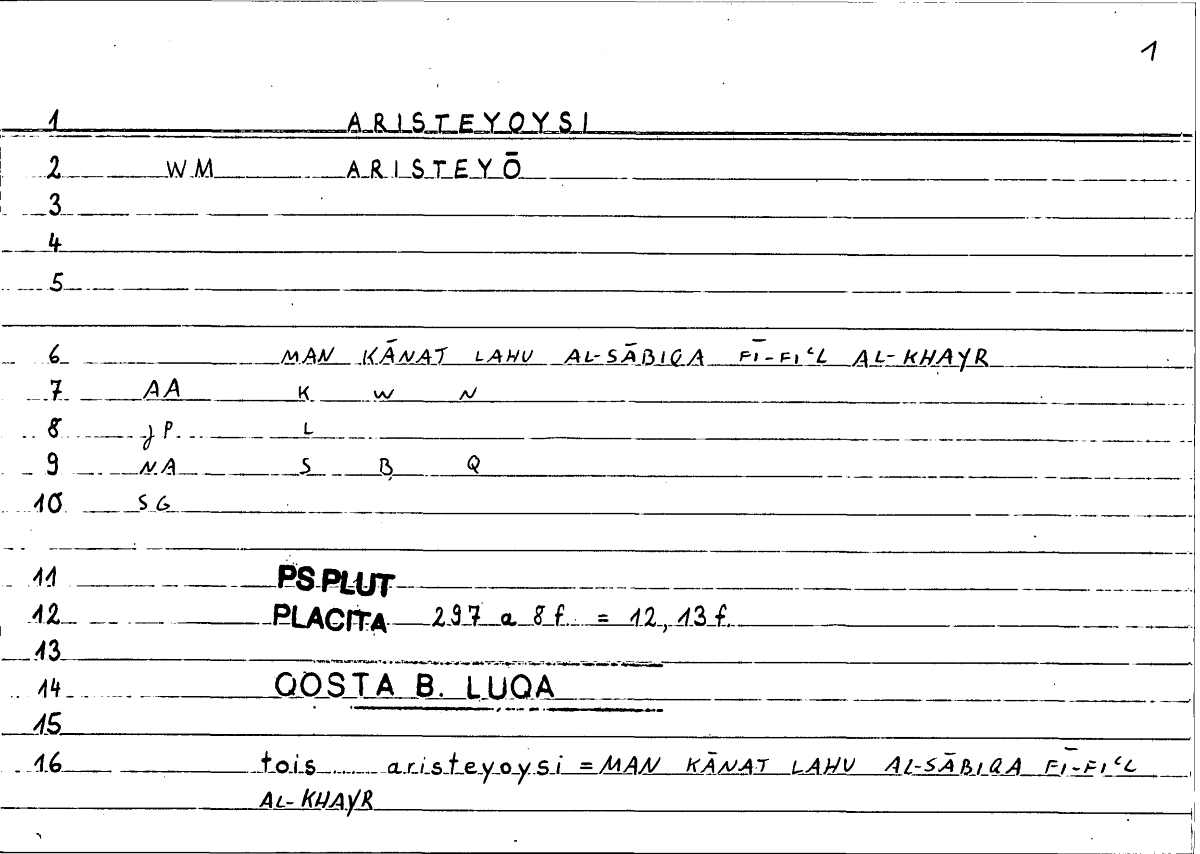 1
1 ARISTEYOYSI
2 WM ARISTEYŌ
3
4
5
6 MAN KĀNAT LAHU AL-SĀBIQA FĪ-FIʿL AL-KHAYR
7 AA K W N
8 JP L
9 NA S B Q
10 SG
11 PS PLUT
12 PLACITA 297 a 8f. = 12,13f.
13
14 QOSTA B. LUQA
15
16 tois aristeyoysi = MAN KĀNAT LAHU AL-SĀBIQA FĪ-FIʿL
AL-KHAYR